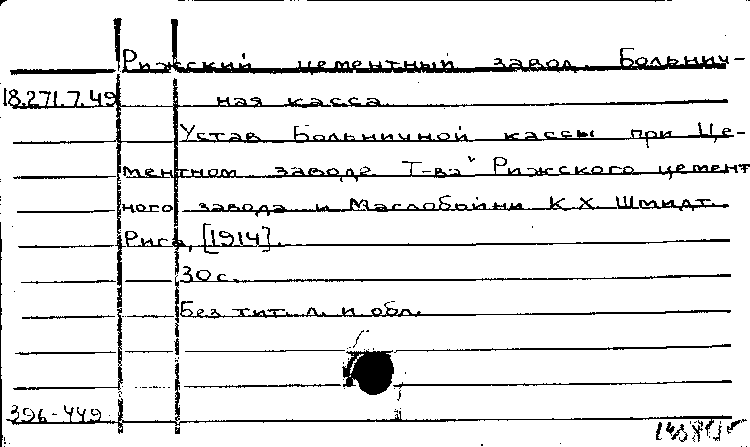 Рижский цементный завод. Больнич-
18.271.7.49 ная касса.
Устав Больничной кассы при Це-
ментном заводе Т-ва "Рижского цемент
ного завода и Маслобойни К. Х. Шмидт.
Рига, [1914].
30 с.
Без тит. л. и обл.
396-449